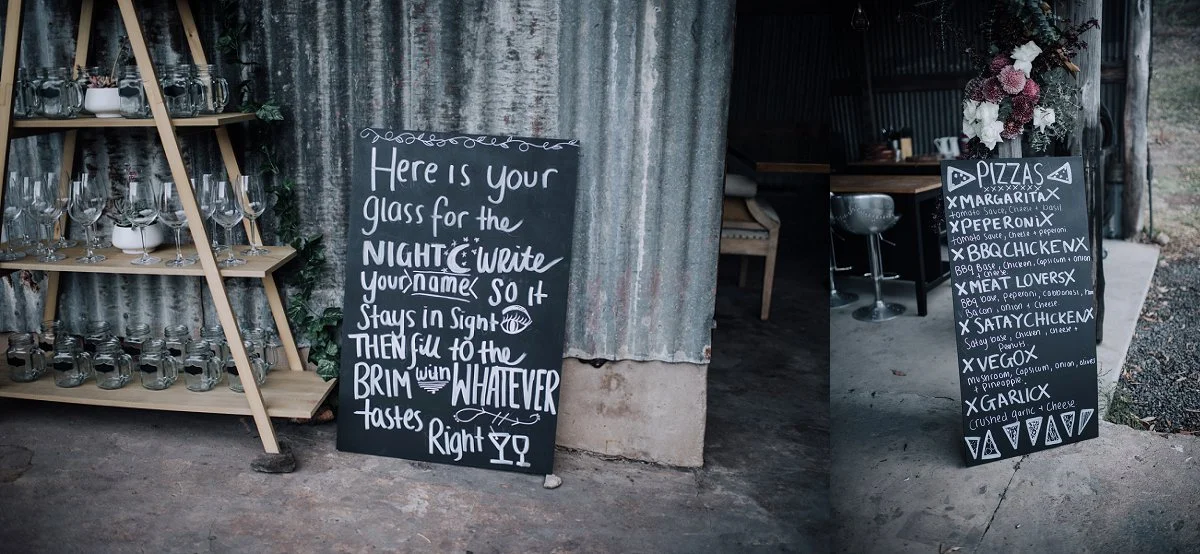 Here is your
glass for the
NIGHT write
your name so it
stays in sight
THEN fill to the
BRIM with WHATEVER
tastes
Right
PIZZAS
XXXXXXX
X MARGARITA X
tomato Sauce, Cheese + basil
X PEPERONI X
tomato Sauce, Cheese + peperoni
X BBQ CHICKEN X
BBQ Base, Chicken, Capsicum + onion
+ Cheese
X MEAT LOVERS X
BBQ base, Peperoni, Cabbonasi, Ham
Bacon, onion + Cheese
X SATAY CHICKEN X
Satay base, Chicken, Cheese +
Peanuts
X VEGO X
Mushroom, Capsicum, onion, olives
+ Pineapple
X GARLIC X
Crushed garlic + Cheese